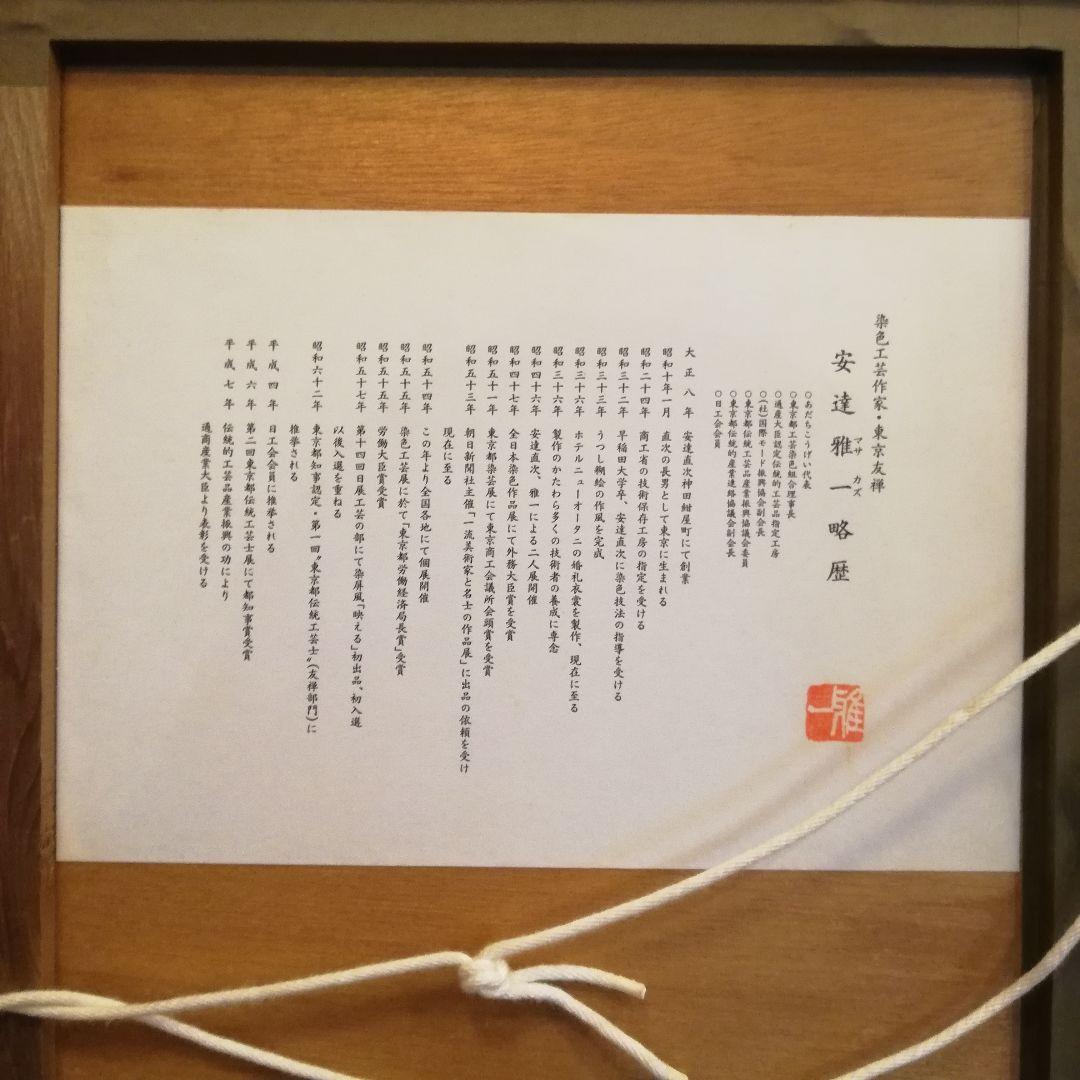 染色工芸作家・東京友禅
安達雅一略歴
マサ カズ
○あだちこうげい代表
○東京都工芸染色組合理事長
○通産大臣認定伝統的工芸品指定工房
○(社)国際モード振興協会副会長
○東京都伝統工芸品産業振興協議会委員
○東京都伝統的産業連絡協議会副会長
○日工会会員
大正八年 安達直次神田紺屋町にて創業
昭和十年一月 直次の長男として東京に生まれる
昭和二十四年 商工省の技術保存工房の指定を受ける
昭和三十二年 早稲田大学卒、安達直次に染色技法の指導を受ける
昭和三十三年 うつし糊絵の作風を完成
昭和三十六年 ホテルニューオータニの婚礼衣裳を製作、現在に至る
昭和三十六年 製作のかたわら多くの技術者の養成に専念
昭和四十六年 安達直次、雅一による二人展開催
昭和四十七年 全日本染色作品展にて外務大臣賞を受賞
昭和五十一年 東京都染芸展にて東京商工会議所会頭賞を受賞
昭和五十三年 朝日新聞社主催「一流美術家と名士の作品展」に出品の依頼を受け
現在に至る
昭和五十四年 この年より全国各地にて個展開催
昭和五十五年 染色工芸展に於て「東京都労働経済局長賞」受賞
昭和五十五年 労働大臣賞受賞
昭和五十七年 第十四回日展工芸の部にて染屏風「映える」初出品、初入選
以後入選を重ねる
昭和六十二年 東京都知事認定・第一回〝東京都伝統工芸士〟(友禅部門)に
推挙される
平成四年 日工会会員に推挙される
平成六年 第二回東京都伝統工芸士展にて都知事賞受賞
平成七年 伝統的工芸品産業振興の功により
通商産業大臣より表彰を受ける
雅一